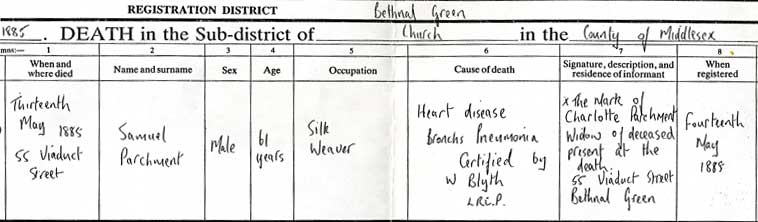 REGISTRATION DISTRICT Bethnal Green
1885 . DEATH in the Sub-district of Church in the County of Middlesex
mns:— 1 2 3 4 5 6 7 8
When and where died
Name and surname
Sex
Age
Occupation
Cause of death
Signature, description, and residence of informant
When registered
Thirteenth
May 1885
55 Viaduct
Street
Samuel
Parchment
Male
61
years
Silk
Weaver
Heart disease
Bronchs Pneumonia
Certified by
W Blyth
L.R.C.P.
x The Mark of
Charlotte Parchment
Widow of deceased
present at the
death
55 Viaduct Street
Bethnal Green
Fourteenth
May
1885